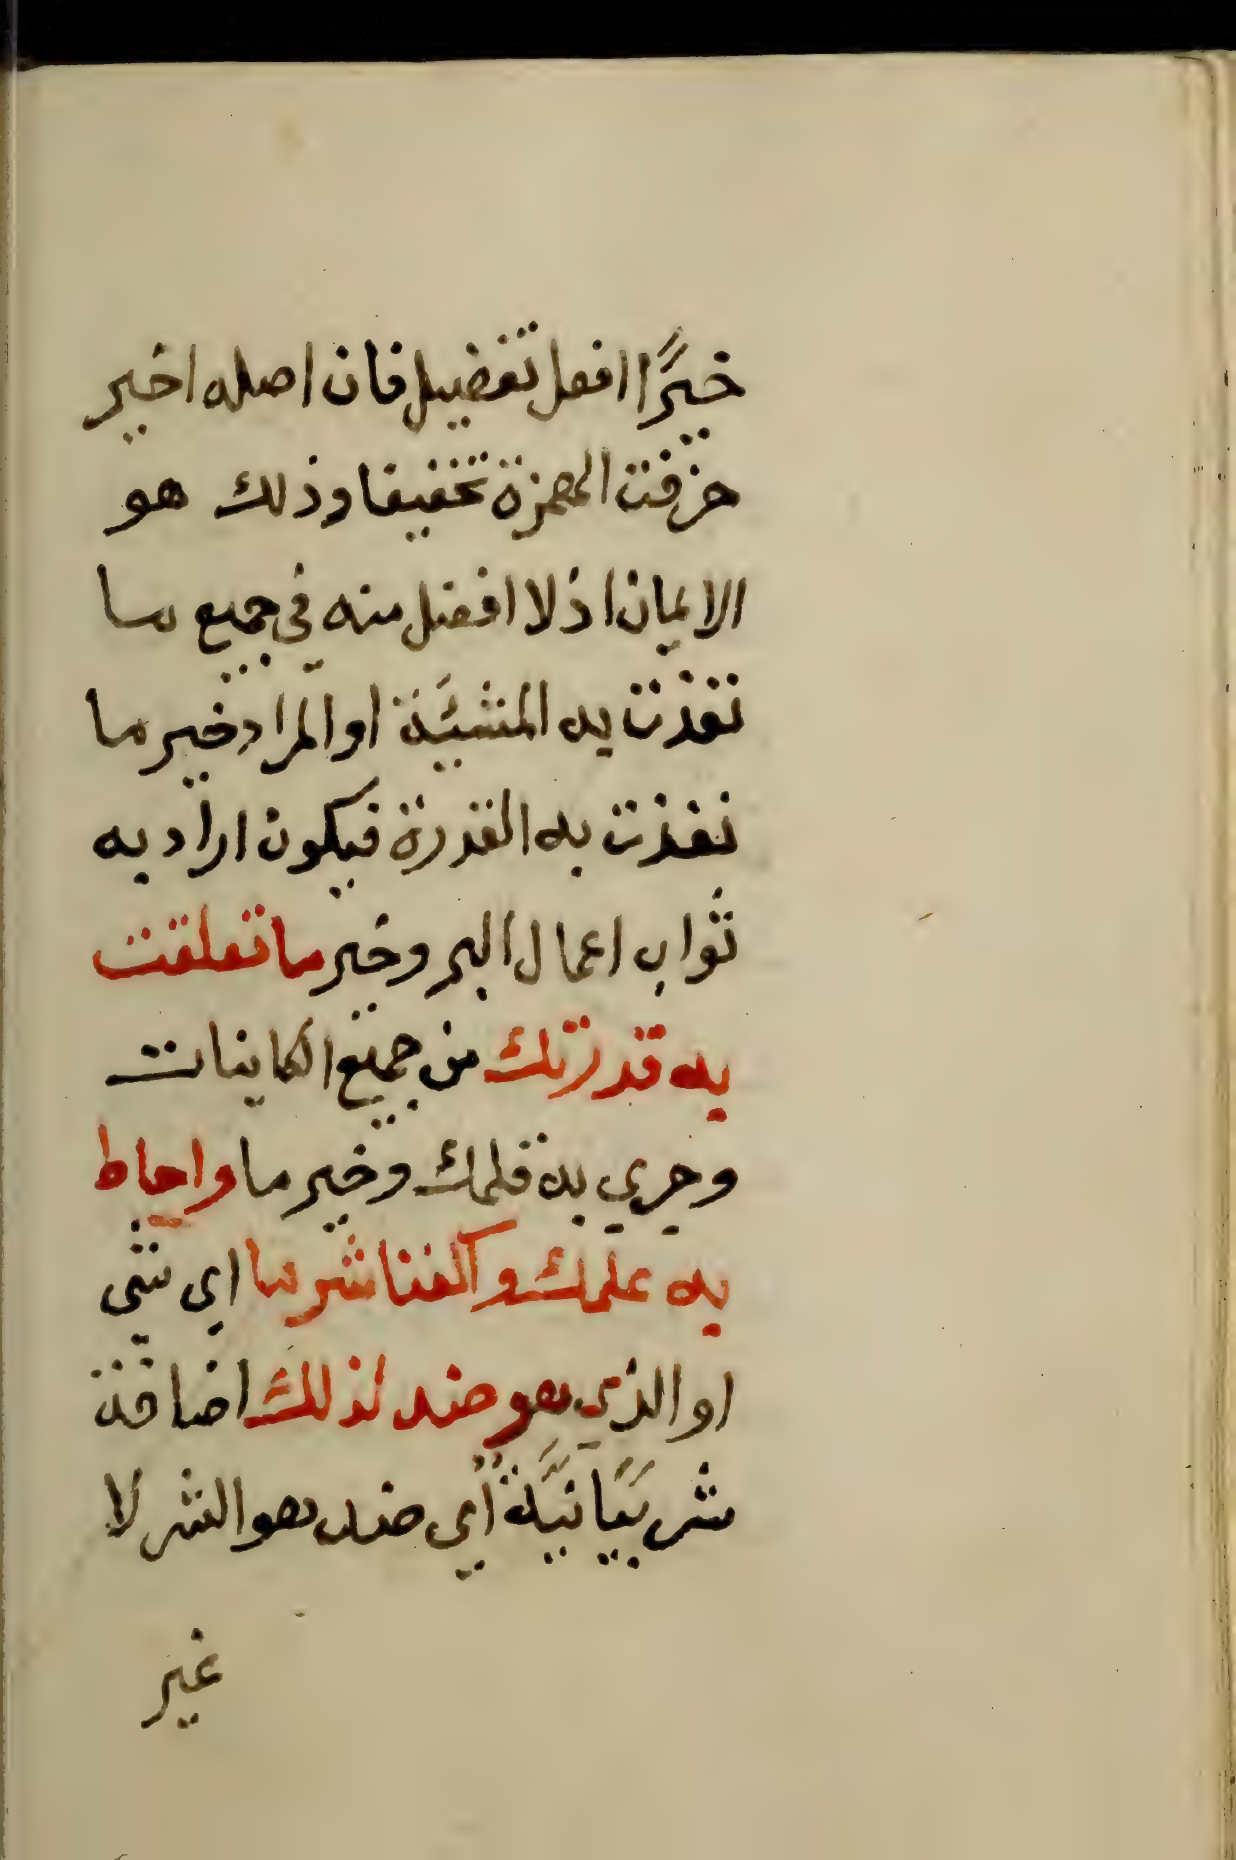 خيرًا افعل تفضيل فان اصله اخير
حزفت الهمزة تخفيفا وذلك هو
الايمان اذ لا افضل منه في جميع ما
نفذت به المشيئة او المراد خير ما
نفذت به القدرة فيكون اراد به
ثواب اعمال البر وخير ما تعلقت
به قدرتك من جميع الكاينات
وجري به قلمك وخير ما واحاط
به علمك واكفنا شر ما اي شي
او الذي هو ضد لذلك اضافة
شر بيانية اي ضد هو الشر لا
غير